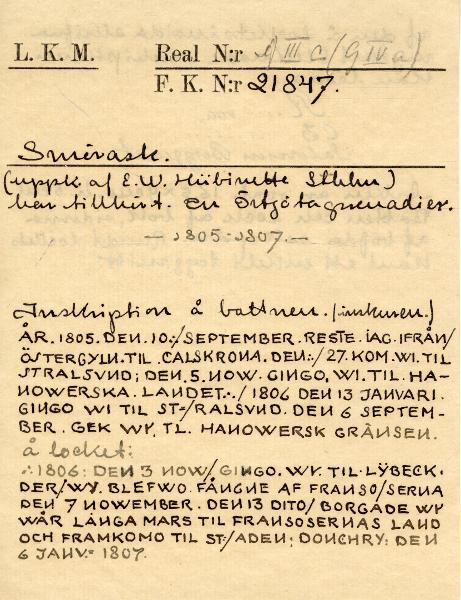 L. K. M. Real N:r III C/(G IV a)
F. K. N:r 21847.
Smörask.
(uppk af E. W. Hübinette Sthlm)
har tillhört en Östgötagrenadier.
— 1805-1807 —
Inskription å bottnen. (inskuren.)
ÅR. 1805. DEN. 10:/SEPTEMBER. RESTE. IAG. IFRÅN/
ÖSTERGYLN. TIL. CALSKRONA. DEN:/27. KOM. WI. TIL
STRALSUND; DEN. 5. NOW. GINGO, WI. TIL. HA-
NOWERSKA. LANDET./1806 DEN 13 JANVARI.
GINGO WI TIL ST/RALSVND. DEN 6 SEPTEM-
BER. GEK WY. TL. HANOWERSK GRÄNSEN.
å locket:
1806: DEN 3 NOW/GINGO. WY. TIL. LŸBECK.
DER/WY. BLEFWO. FÅNGNE AF FRANSO/SERNA
DEN 7 NOVEMBER. DEN 13 DITO/BORGADE WY
WÅR LÅNGA MARS TIL FRANSOSERNAS LAND
OCH FRAMKOMO TIL ST/ADEN; DONCHRY: DEN
6 JANV. 1807.